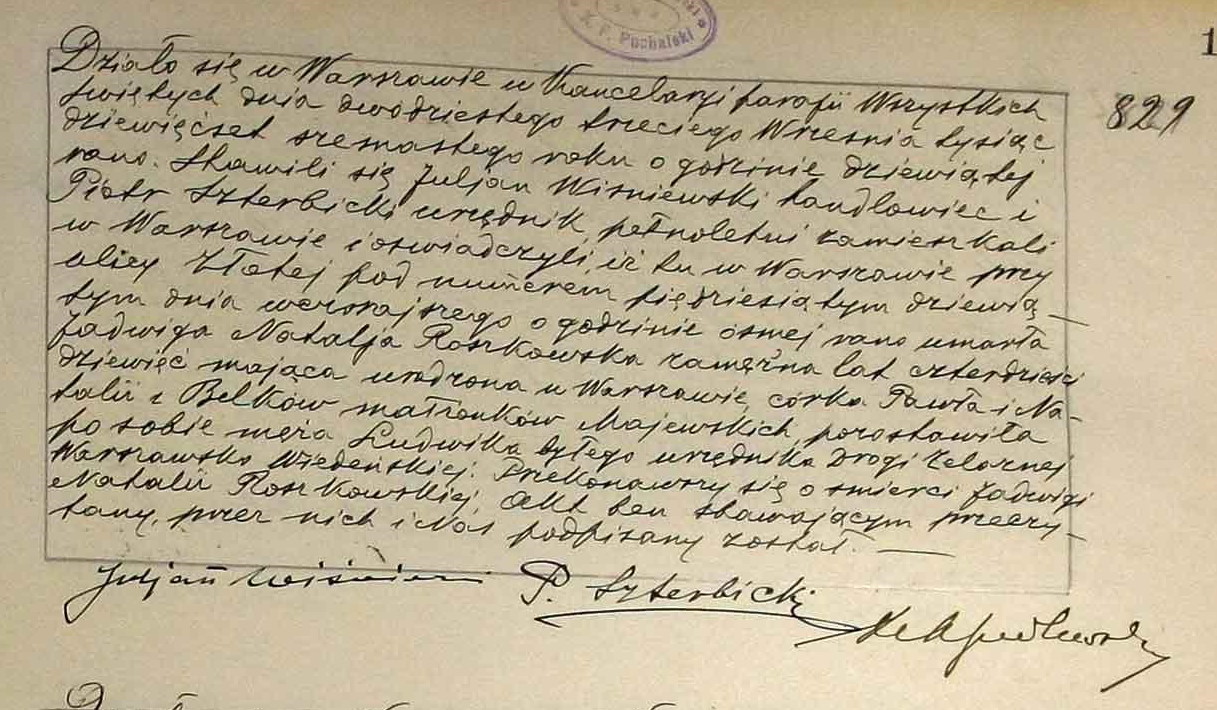 K. F. Puchalski
1
829
Działo się w Warszawie w Kancelaryi parafii Wszystkich
Świętych dnia dwudziestego trzeciego Września tysiąc
dziewięćset szesnastego roku o godzinie dziewiątej
rano. Stawili się Juljan Wiśniewski handlowiec i
Piotr Szterbicki urzędnik, pełnoletni zamieszkali
w Warszawie i oświadczyli, iż tu w Warszawie przy
ulicy Złotej pod numerem pięćdziesiątym dziewią–
tym dnia wczorajszego o godzinie ósmej rano umarła
Jadwiga Natalja Roszkowska zamężna lat czterdzieści
dziewięć mająca urodzona w Warszawie, córka Pawła i Na–
talii z Belków małżonków Majewskich, pozostawiła
po sobie męża Ludwika byłego urzędnika Drogi Żelaznej
Warszawsko Wiedeńskiej. Przekonawszy się o śmierci Jadwigi
Natalii Roszkowskiej, Akt ten stawającym przeczy–
tany, przez nich i Nas podpisany został. —
Juljan Wiśniewski P. Szterbicki